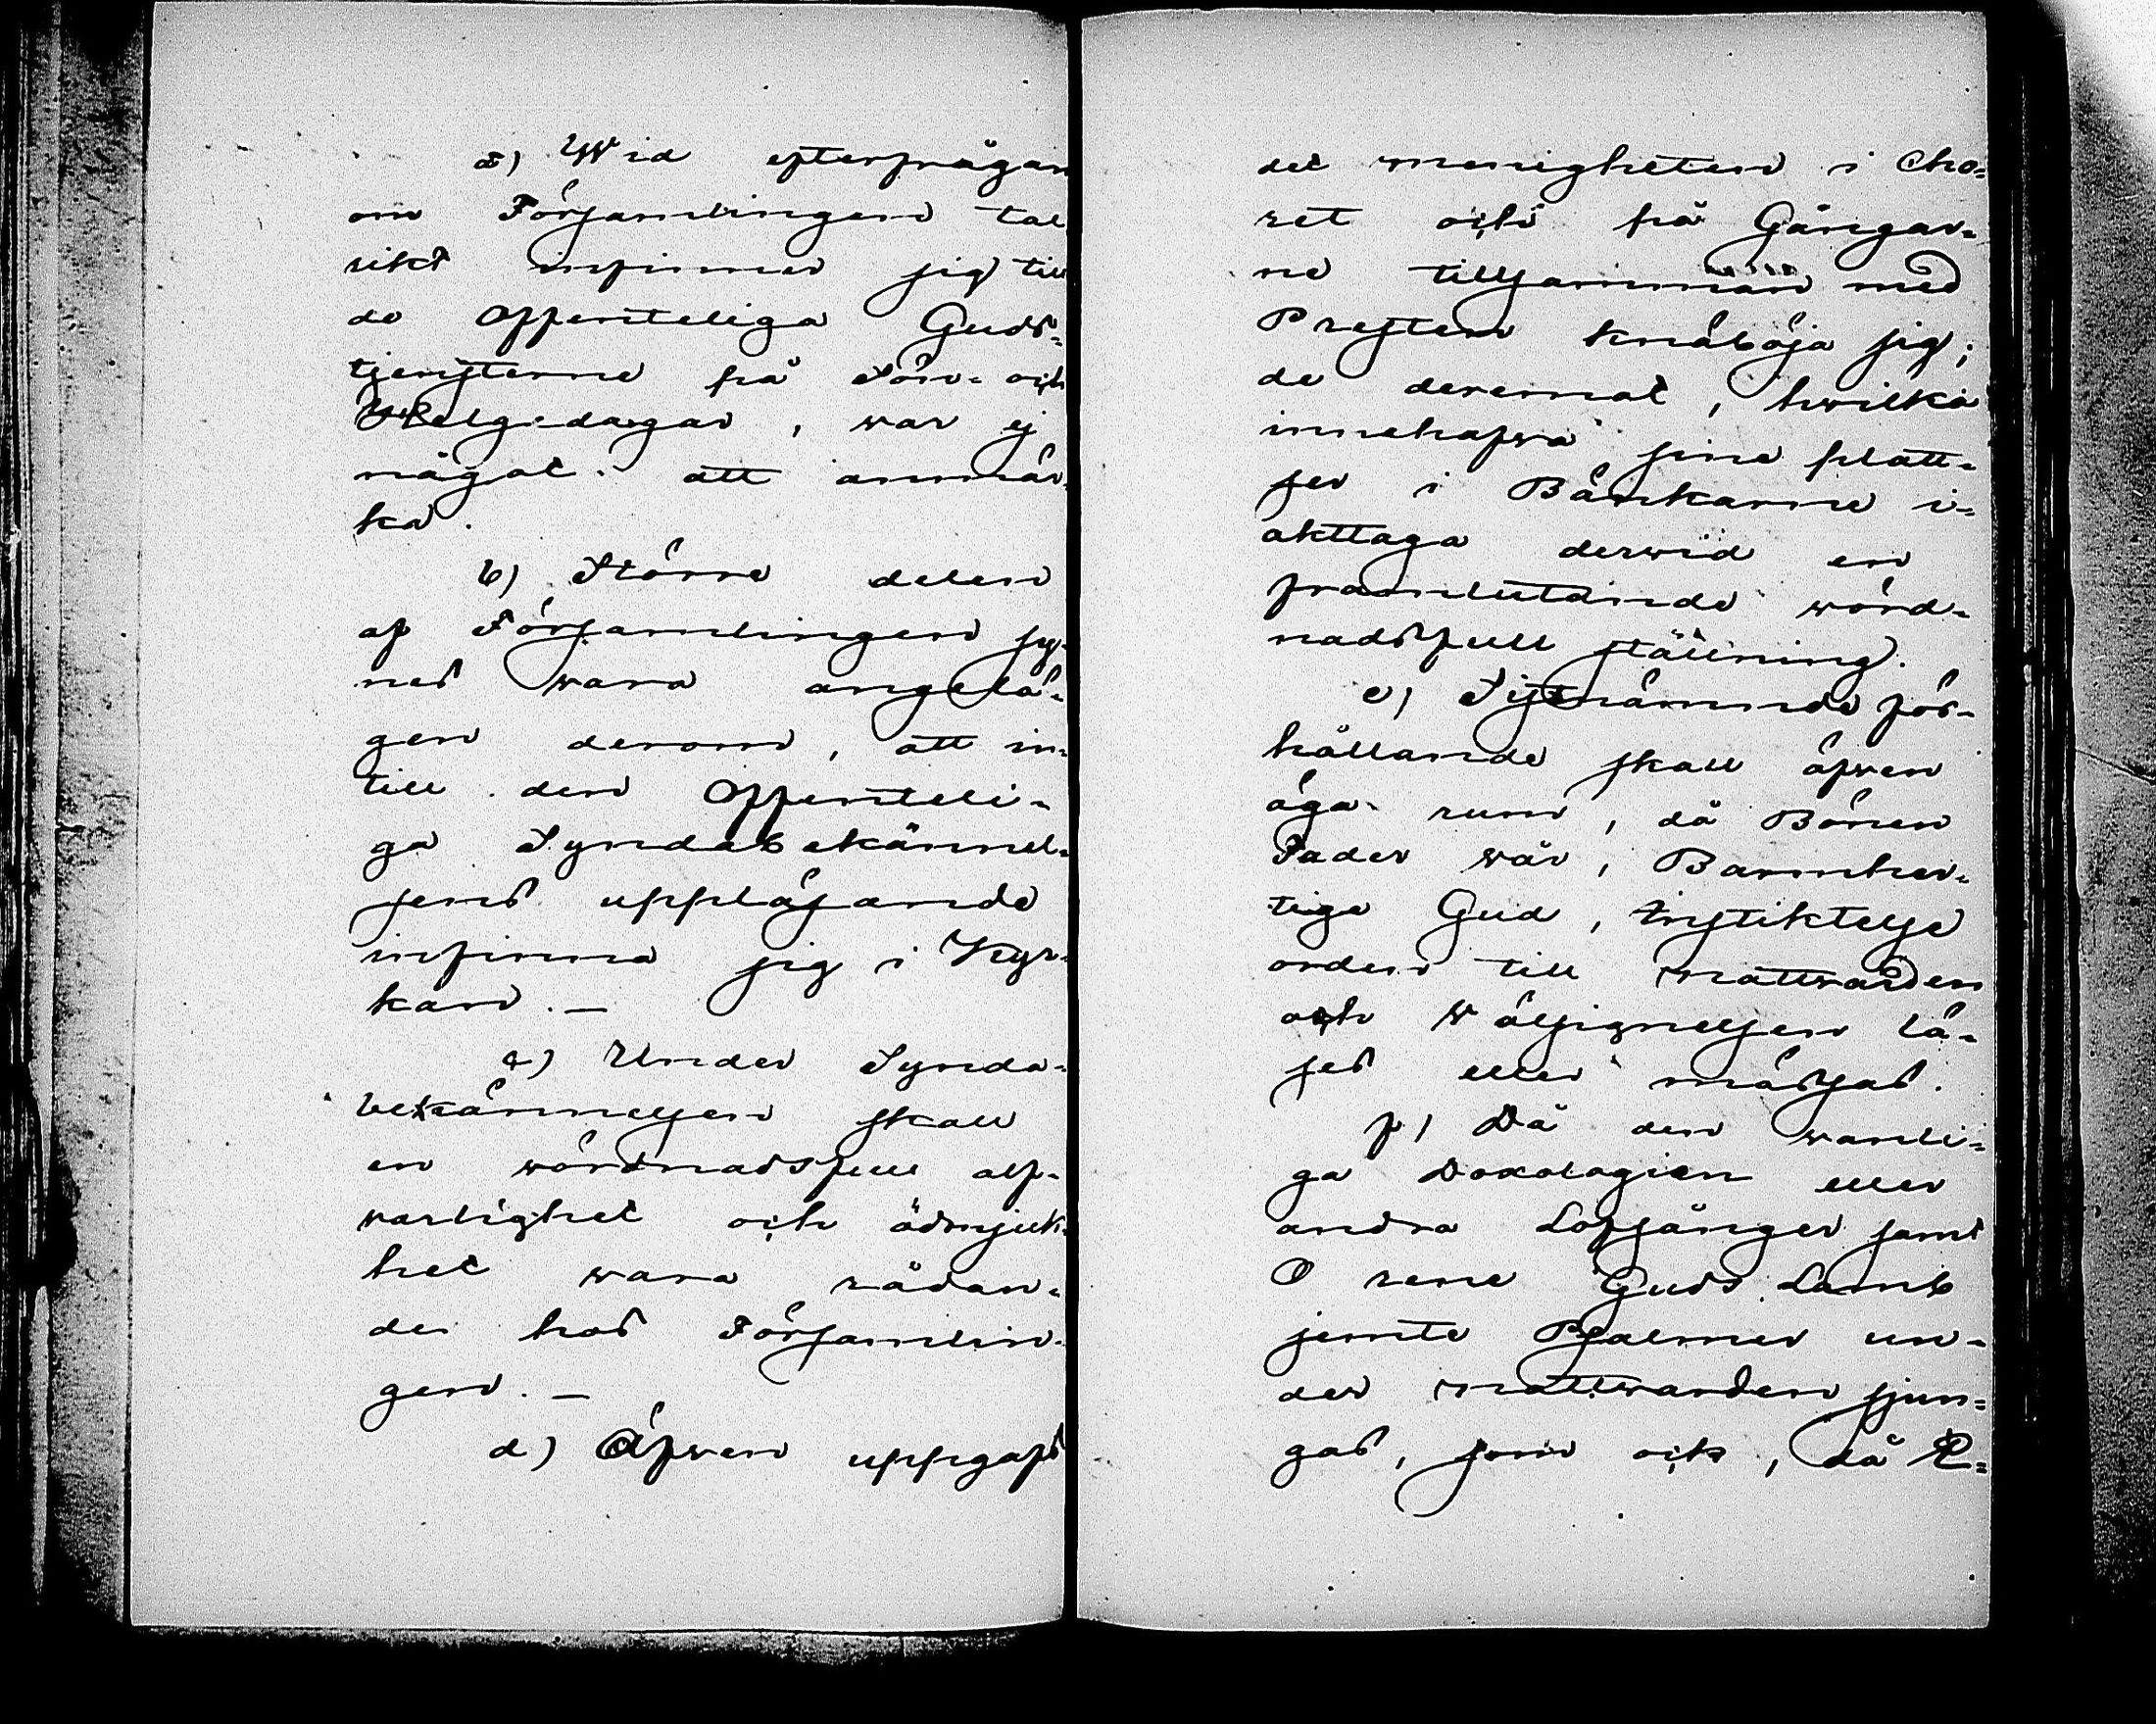 a) Wid efterfrågan
om Församlingen tal
rikt infinner sig till
de Offenteliga Guds-
tjensterne på Sön- och
Helgedagar, war ej
något att anmär-
ka.
b) Större delen
af Församlingen sy-
nes wara angelä-
gen derom, att in-
till den Offenteli-
ga Syndabekännel-
sens uppläsande
infinna sig i Kyr-
kan. —
c) Under Synda-
bekännelsen skall
en wördnadsfull alf-
warlighet och ödmjuk-
het wara rådan-
de hos Församlin-
gen. —
d) Äfwen uppgafs
det menigheten i Cho-
ret och på Gångar-
ne tillsamman med
Presten knäböja sig;
de deremot, hwilka
innehafwa sine platt-
ser i Bänkarne i-
akttaga derwid en
framlutande wörd-
nadsfull ställning.
e) Sistnämnde för-
hållande skall äfwen
äga rum, då Bönen
Fader wår, Barmher-
tige Gud, Instiktelse
orden till Nattwarden
och Wälsignelsen lä-
ses eller mässas.
f) Då den wanli-
ga Doxologien eller
andra Lofsånger samt
O rene Guds Lamb
jemte Psalmer un-
der Nattwarden sjun-
gas, som ock, då E-